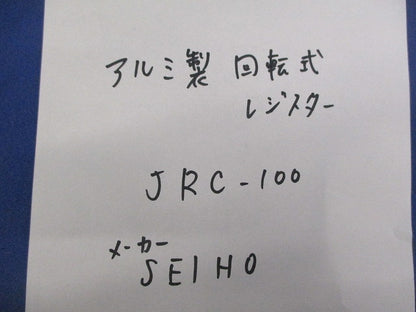 アルミ製 回転式
レジスター
JRC-100
メーカー
SEIHO